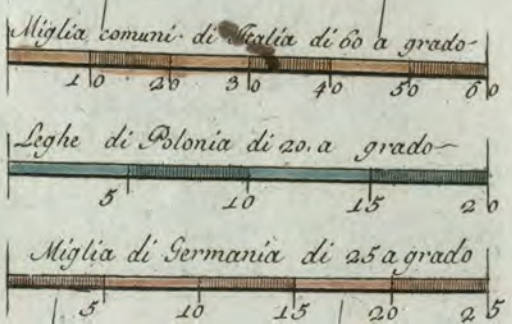 Miglia comuni di Italia di 60 a grado
10 20 30 40 50 60
Leghe di Polonia di 20. a grado
5 10 15 20
Miglia di Germania di 25 a grado
5 10 15 20 25